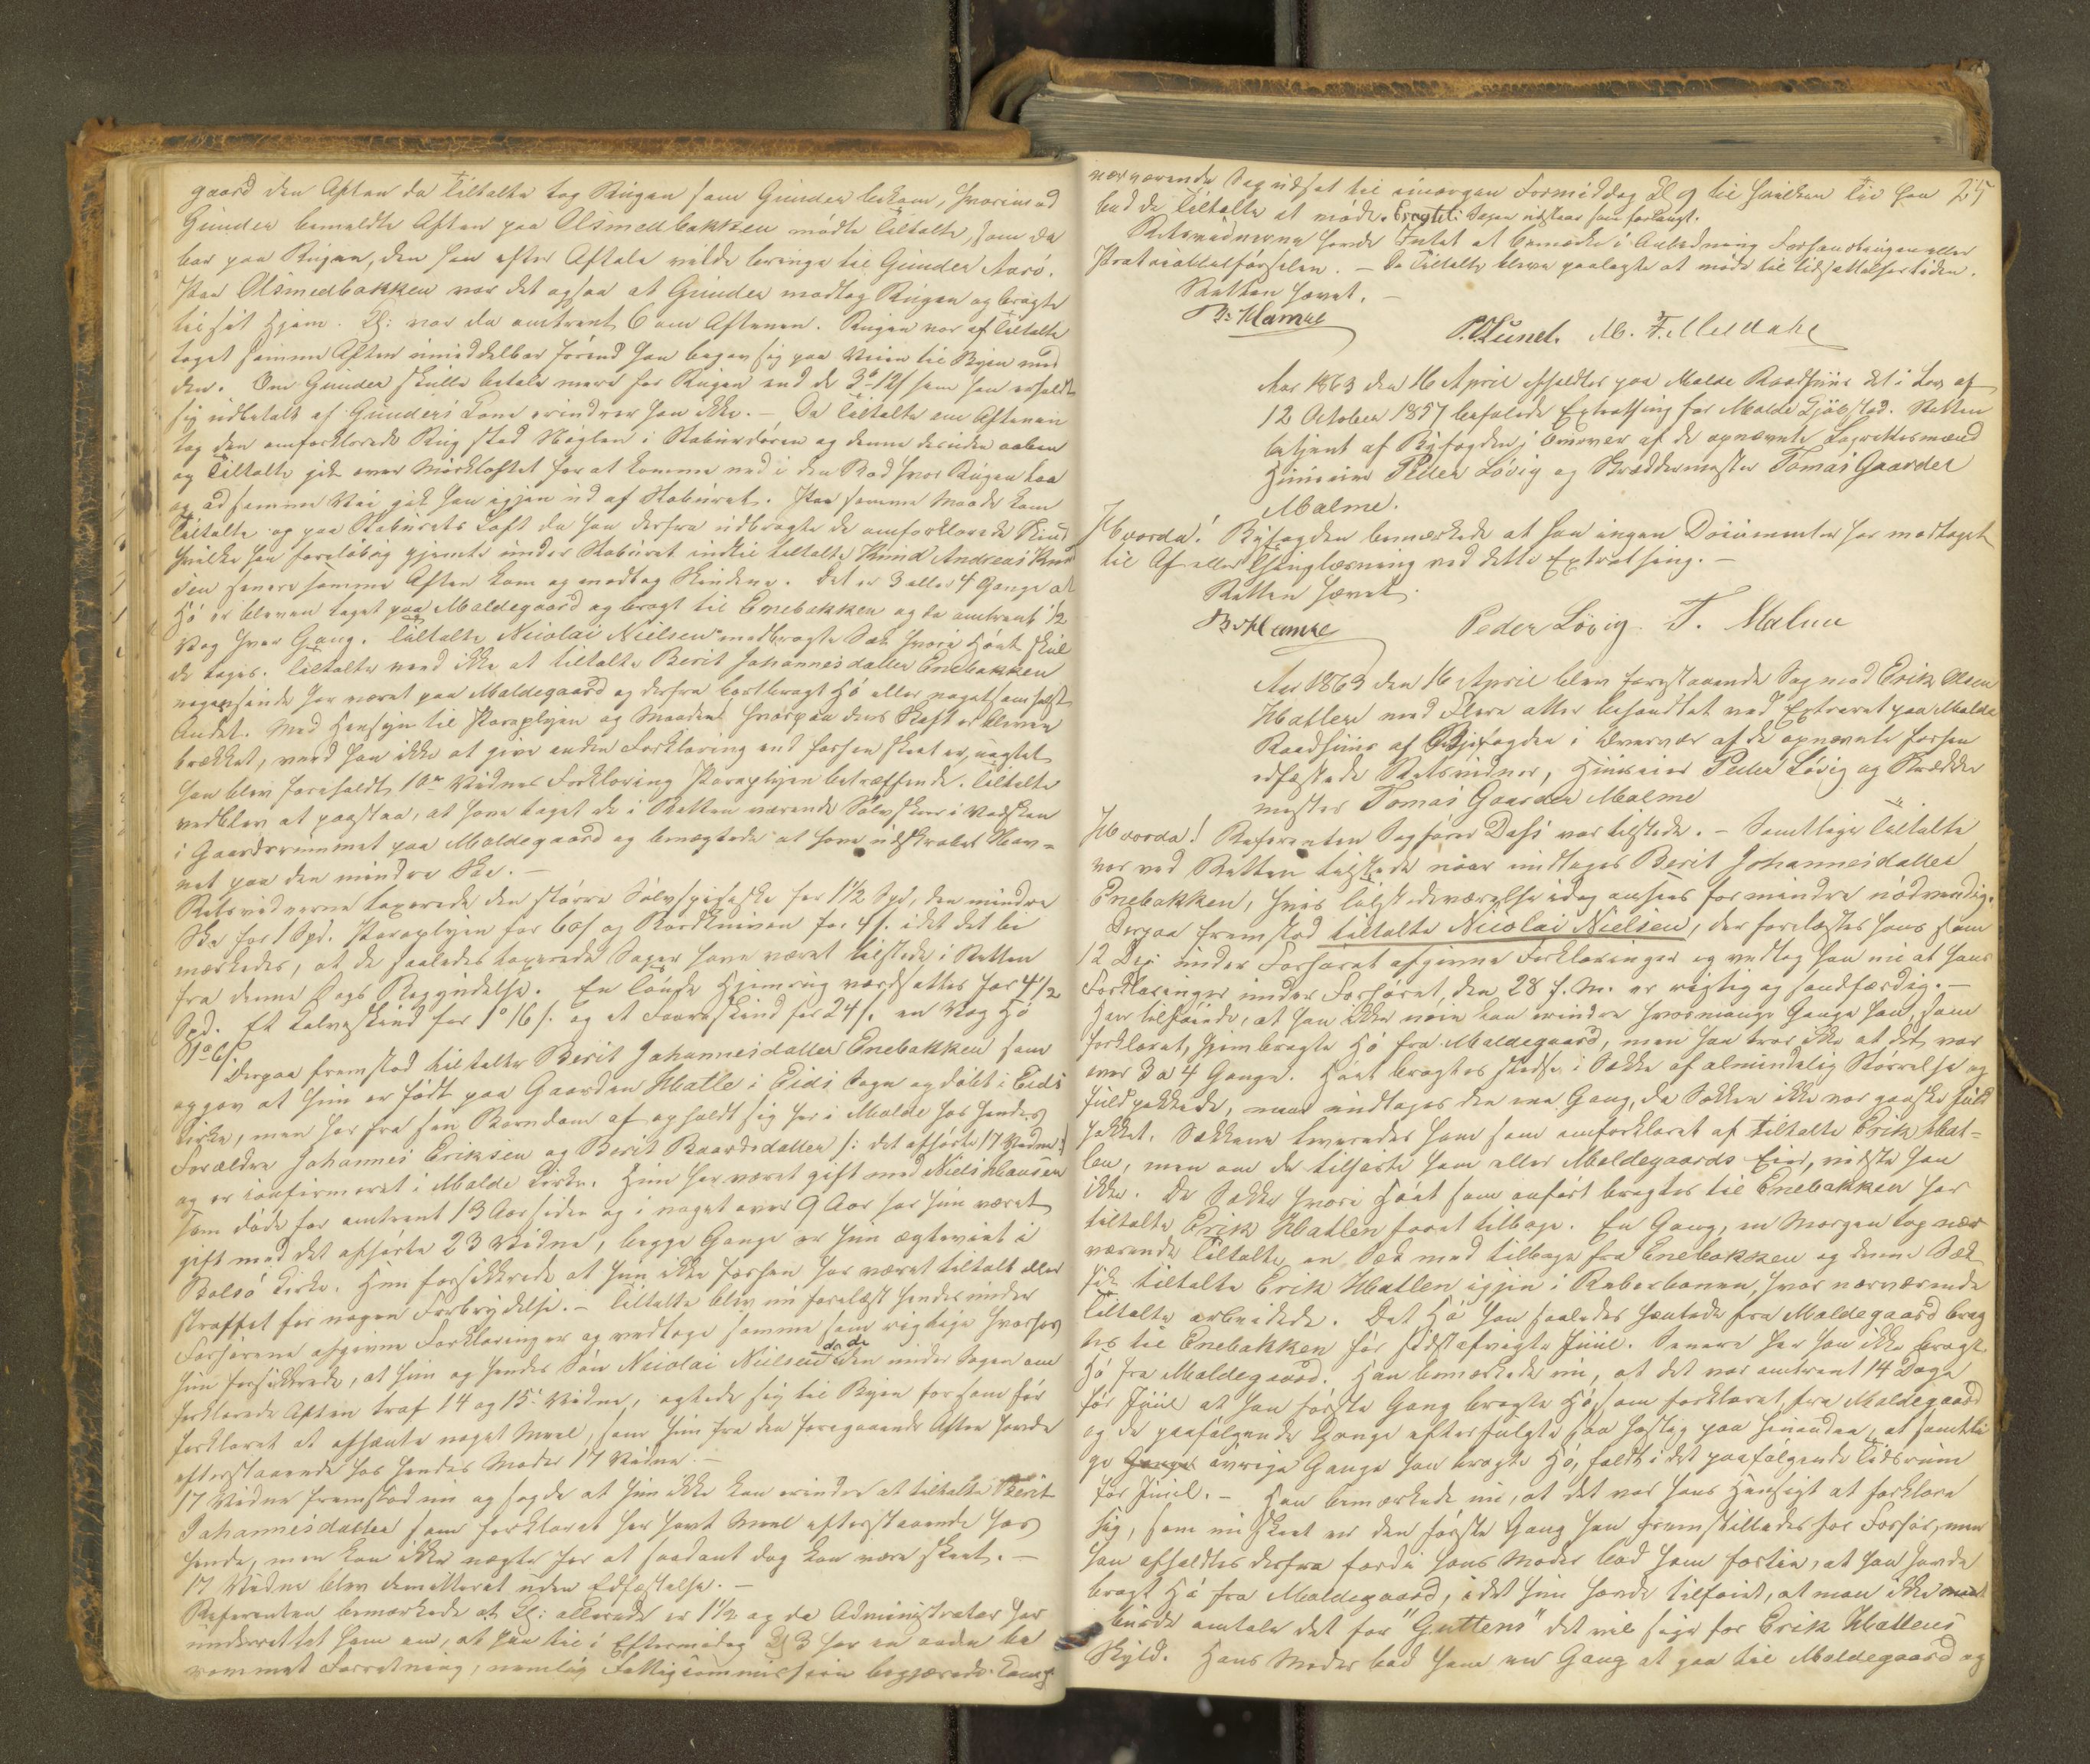 gaard den Aften da Tiltalte tog Rugen som Gunder bekom, hvorimod
Gunder bemeldte Aften paa Olsmedbakken mødte Tiltalte, som da
bar paa Rugen, den han efter Aftale vilde bringe til Gunder Aarø.
Paa Olsmedbakken var det ogsaa at Gunder modtog Rugen og bragte
til sit Hjem. Kl: var da omtrent 6 om Aftenen. Rugen var af Tiltalte
taget samme Aften umiddelbar førend han begav sig paa Veien til Byen med
den. Om Gunder skulle betale mere for Rugen end de 3 12/ som han erholdt
sig udbetalt af Gunders Kone erindrer han ikke. – Da Tiltalte om Aftenen
tog den omforklarede Rug stod Nøglen i Stabursdøren og denne desuden aaben
og Tiltalte gik over Mørkloftet for at komme ned i den Bod hvor Rugen laa
og ad samme Vei gik han igjen ud af Staburet. Paa samme Maade kom
Tiltalte og paa Staburets Loft da han derfra udbragte de omforklarede Skind
hvilke han foreløbig gjemte under Staburet indtil tiltalte Knud Andreas Knud
sen senere samme Aften kom og modtog Skindene. Det er 3 eller 4 Gange at
Hø er bleven taget paa Moldegaard og bragt til Enebakken og da omtrent 1/2
Vog hver Gang. Tiltalte Nicolai Nielsen medbragte Sæk hvori Høet skul
de tages. Tiltalte veed ikke at tiltalte Berit Johannesdatter Enebakken
nogensinde har været paa Moldegaard og derfra bortbragt Hø eller noget somhelst
Andet. Med Hensyn til Paraplyen og Maaden hvorpaa dens Skaft er bleven
brækket, veed han ikke at give anden Forklaring end forhen skeet er, uagtet
han blev foreholdt 10de Vidnes Forklaring Paraplyen betræffende. Tiltalte
vedblev at paastaa, at have taget de i Retten værende Sølvskeer i Vadsken
i Gaardsrummet paa Moldegaard og benægtede at have udskrabet Nav-
net paa den mindre Ske. –
Retsvidnerne taxerede den større Sølvspiseske for 1 1/2 Spd, den mindre
Ske for 1 Spd. Paraplyen for 60/ og Bordkniven for 4/. idet det be
mærkedes, at de saaledes taxerede Sager have været tilstede i Retten
fra denne Sags Begyndelse. En Tønde Hjemrug værdsattes for 4 1/2
Spd. Et Kalveskind for 1 16/. og et Faareskind for 24/. en Vog Hø
Derpaa fremstod tiltalte Berit Johannesdatter Enebakken som
opgav at hun er født paa Gaarden Hatle i Eids Sogn og døbt i Eids
Kirke, men har fra sin Barndom af opholdt sig her i Molde hos hendes
Forældre Johannes Eriksen og Berit Baardsdatter /: det afhørte 17 Vidne :/
og er confirmeret i Molde Kirke. Hun har været gift med Niels Hansen
som døde for omtrent 13 Aar siden og i noget over 9 Aar har hun været
gift med det afhørte 23 Vidne, begge Gange er hun ægteviet i
Bolsø Kirke. Hun forsikkrede at hun ikke forhen har været tiltalt eller
straffet for nogen Forbrydelse. – Tiltalte blev nu forelæst hendes under
Forhørene afgivne Forklaringer og vedtoge samme som rigtige hvorhos
hun forsikkrede, at hun og hendes Søn Nicolai Nielsen da de den under Sagen om
forklarede Aften traf 14 og 15 Vidne, agtede sig til Byen for som før
forklaret at afhente noget Meel, som hun fra den foregaaende Aften havde
efterstaaende hos hendes Moder 17 Vidne. –
17 Vidne fremstod nu og sagde at hun ikke kan erindre at tiltalte Berit
Johannesdatter som forklaret har havt Meel efterstaaende hos
hende, men kan ikke nægte for at saadant dog kan være skeet. –
17 Vidne blev demitteret uden Edfæstelse. –
Referenten bemærkede at Kl: allerede er 1 1/2 og da Administrator har
underrettet ham om, at han til i Eftermiddag Kl 3 har en anden be
rammet Forretning, nemlig Fattigcommission begjærede
nærværende Sag udsat til imorgen Formiddag Kl 9 til hvilken Tid han 25
bad de Tiltalte at møde. Eragtet: Sagen udstaar som forlangt.
Retsvidnerne havde Intet at bemærke i Anledning Forhandlingen eller
Protocollatførselen. – De Tiltalte bleve paalagte at møde til Udsættelsestiden.
Retten hævet. –
B. Hamre
P. Olsen Lund. M. F. Meldahl
Aar 1863 den 16 April afholdtes paa Molde Raadhuus det i Lov af
12 October 1857 befalede Extrathing for Molde Kjøbstad. Retten
betjent af Byfogden i Overvær af de opnævnte Lagrettesmænd
Huuseier Peder Løvig og Skræddermester Tomas Gaarder
Malme.
Hvorda! Byfogden bemærkede at han ingen Documenter har modtaget
til Af- eller Thinglæsning ved dette Extrathing. –
Retten hævet.
B. Hamre Peder Løvig. T. Malme
Aar 1863 den 16 April blev forestaaende Sag mod Erik Olsen
Hatlen med Flere atter behandlet ved Extraret paa Molde
Raadhuus af Byfogden i Overvær af de opnævnte forhen
edfæstede Retsvidner, Huuseier Peder Løvig og Skrædder
mester Tomas Gaarder Malme
Hvorda! Referenten Sagfører Dahl var tilstede. – Samtlige Tiltalte
var ved Retten tilstede naar undtages Berit Johannesdatter
Enebakken, hvis Tilstedeværelse idag ansees for mindre nødvendig.
Derpaa fremstod tiltalte Nicolai Nielsen, der forelæstes hans som
12 Dep: under Forhøret afgivne Forklaringer og vedtog han nu at hans
Forklaringer under Forhøret, den 28 f. M. er rigtig og sandfærdig. –
Han tilføiede, at han ikke nøie kan erindre hvormange Gange han, som
forklaret, hjembragte Hø fra Moldegaard, men han tror ikke at det var
over 3 a 4 Gange. Høet bragtes stedse i Sække af almindelig Størrelse og
fuldpakkede, naar undtages den ene Gang, da Sækken ikke var ganske fuld
pakket. Sækkene leveredes ham som omforklaret af tiltalte Erik Hat-
len, men om de tilhørte ham eller Moldegaards Eier, vidste han
ikke. De Sække hvori Høet som anført bragtes til Enebakken har
tiltalte Erik Hatlen faaet tilbage. En Gang, en Morgen tog nær
værende Tiltalte en Sæk med tilbage fra Enebakken og denne Sæk
fik tiltalte Erik Hatlen igjen i Reberbanen, hvor nærværende
Tiltalte arbeidede. Det Hø han saaledes hentede fra Moldegaard brag
tes til Enebakken før sidstafvigte Juul. Senere har han ikke bragt
Hø fra Moldegaard. Han bemærkede nu, at det var omtrent 14 Dage
før Juul at han første Gang bragte Hø, som forklaret, fra Moldegaard
og de paafølgende Gange efterfulgte saa hastig paa hinanden, at samtli
ge øvrige Gange han bragte Hø, faldt i det paafølgende Tidsrum
før Juul. – Han bemærkede nu, at det var hans Hensigt at forklare
sig, som nu skeet er den første Gang han fremstilledes for Forhør, men
han afholdtes derfra fordi hans Moder bad ham fortie, at han havde
bragt Hø fra Moldegaard, i det hun havde tilføiet, at man ikke
burde omtale det for "Guttens" det vil sige for Erik Hatlens
Skyld. Hans Moder bad ham en Gang at gaa til Moldegaard og